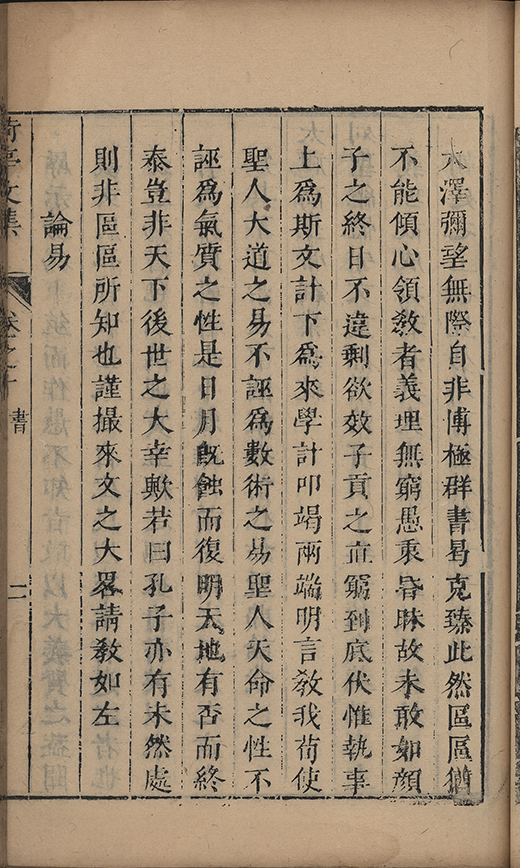 大澤彌望無際自非博極群書曷克臻此然區區猶
不能傾心領敎者義理無窮愚秉昏眛故未敢如顔
子之終日不違剩欲效子貢之直窮到底伏惟執事
上爲斯文計下爲來學計叩竭兩端明言敎我茍使
聖人大道之易不誣爲數術之易聖人天命之性不
誣爲氣質之性是日月旣蝕而復明天地有否而終
泰豈非天下後世之大幸歟若曰孔子亦有未然處
則非區區所知也謹撮來文之大畧請敎如左
論易
荷亭文集
卷之十
書
二